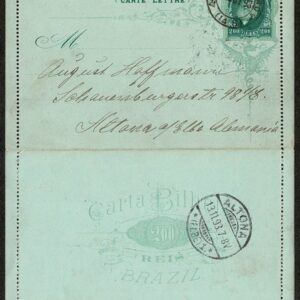 CARTE LETTRE
200 200
M
August Hoffmann
Schauenburgerstr
Altona a/Elbe Alemania
Carta Bil
200
REIS
BRAZIL
ALTONA
13.11.93.7-8V.